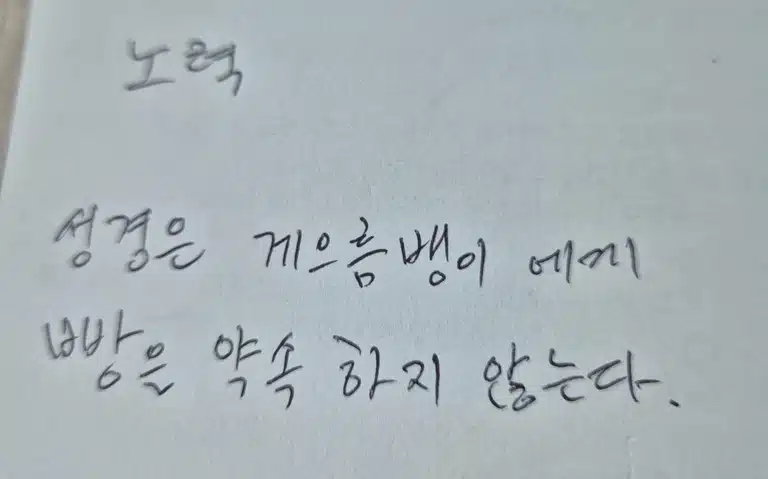 노력
성경은 게으름뱅이 에게
빵은 약속 하지 않는다.